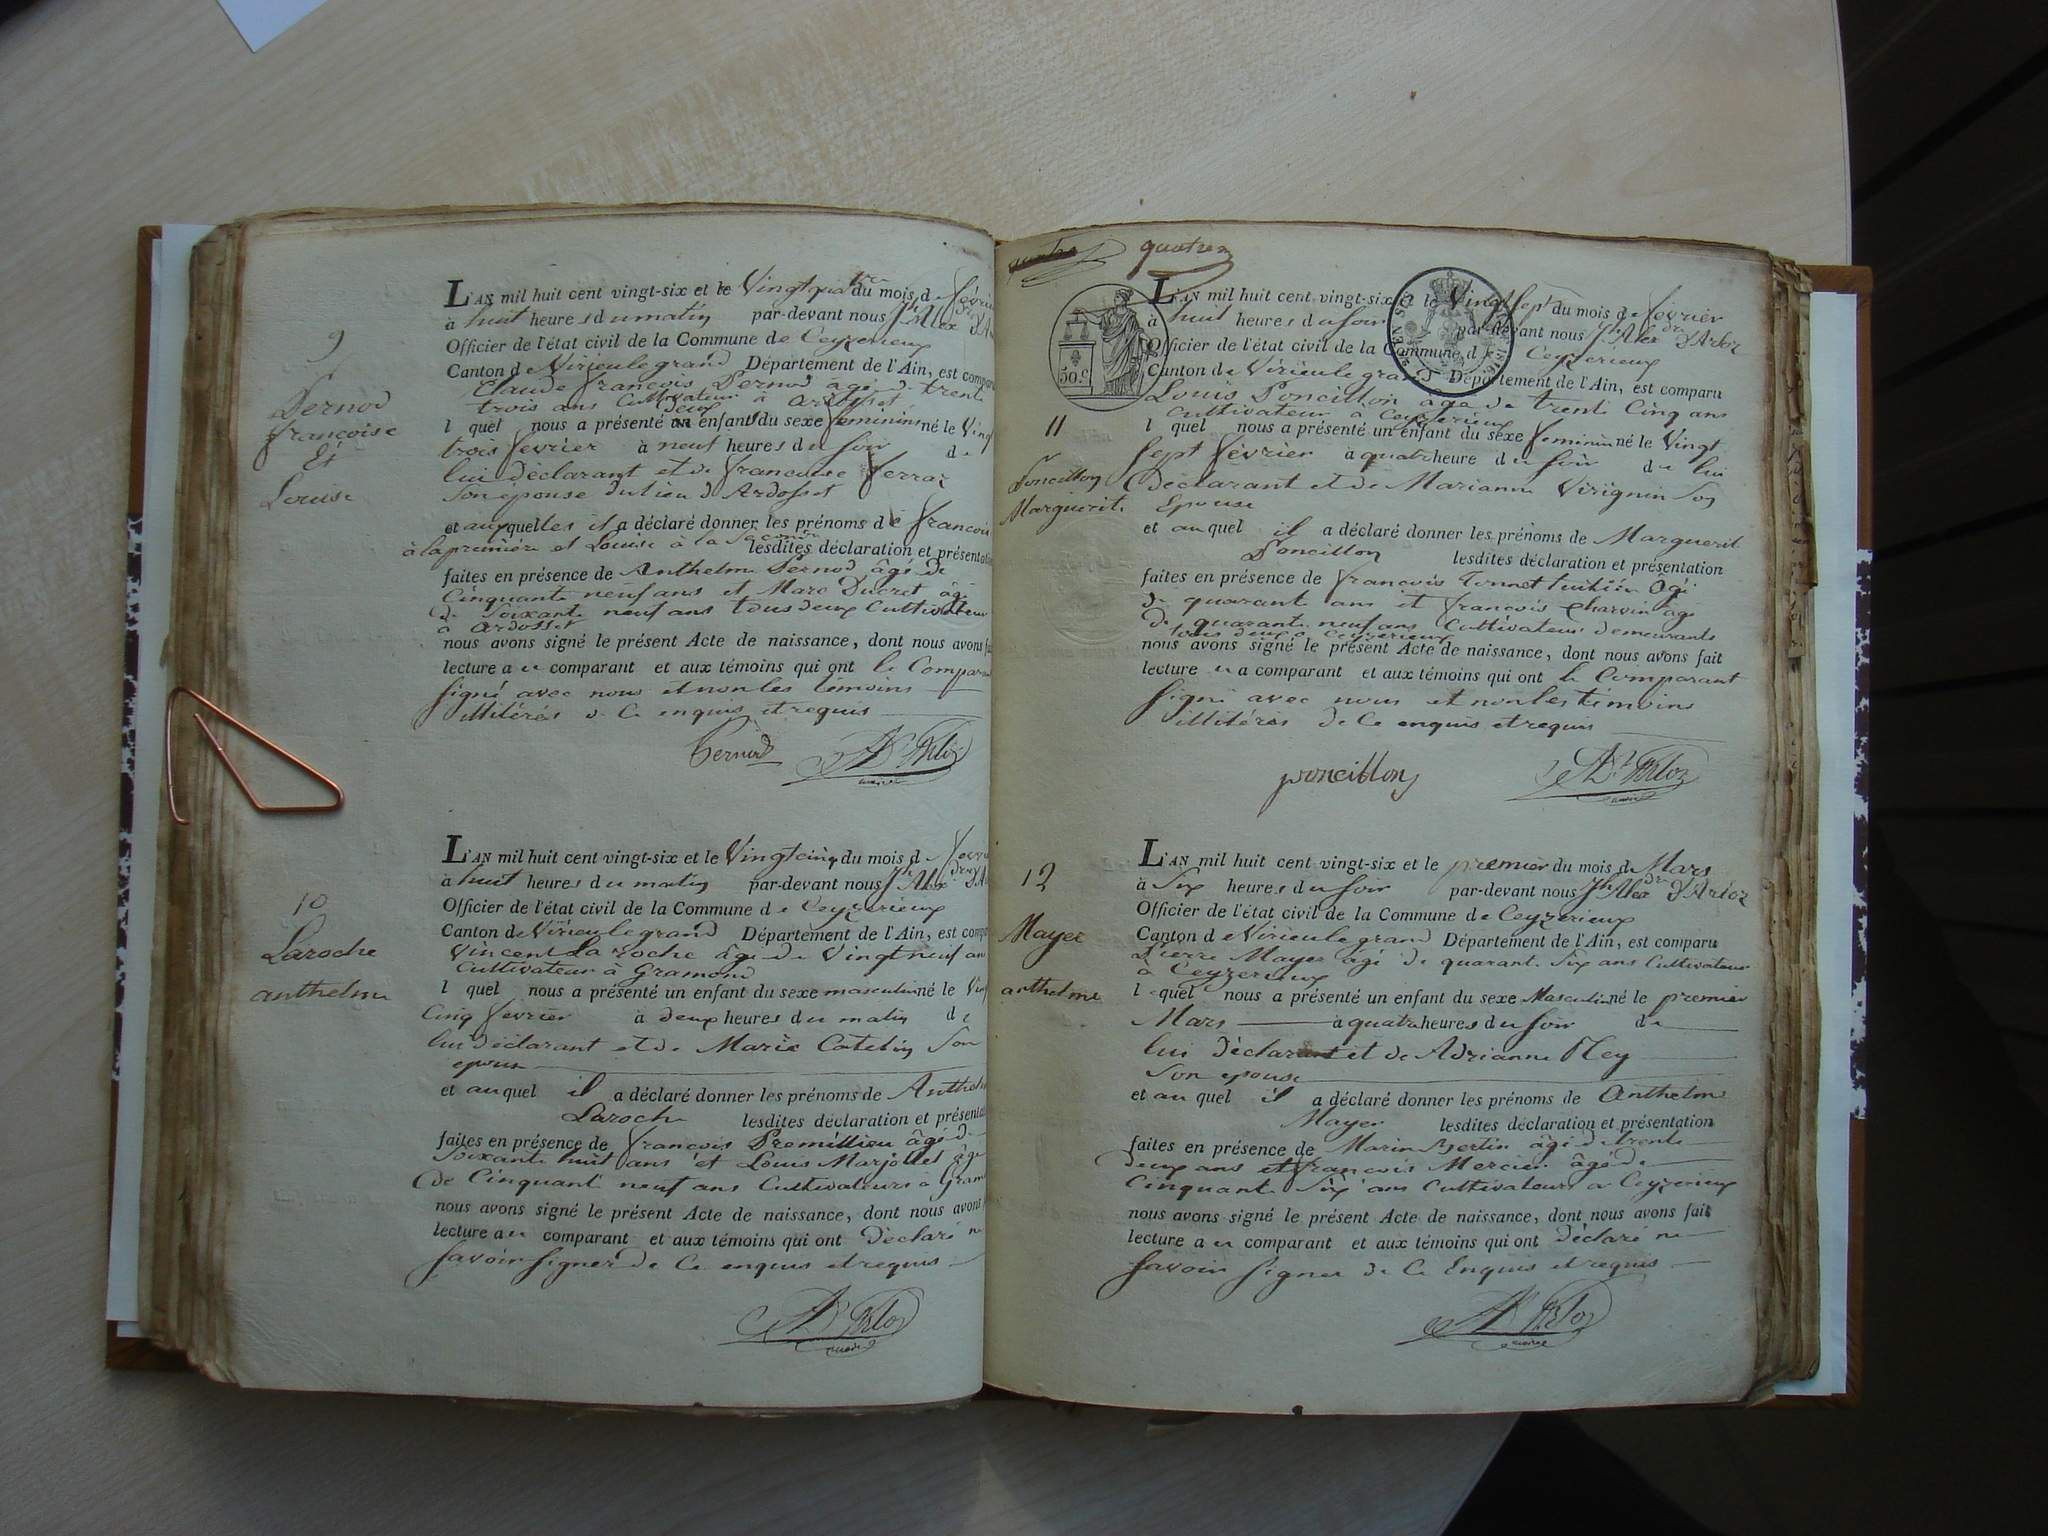 9
Pernod
françoise
Et
Louise
L'AN mil huit cent vingt-six et le Vingt quatre du mois de
à huit heures du matin par-devant nous Jh Alex
Officier de l'état civil de la Commune de Ceyzerieux
Canton de Virieu le grand Département de l'Ain, est comparu
Claude françois Pernod agé de trente
trois ans Cultivateur à Ardosset
l quel nous a présenté deux enfants du sexe feminin né le Vingt
trois fevrier à neuf heures du soir de
lui déclarant et de francoise ferraz
Son épouse du lieu d'Ardosset
et auxquelles il a déclaré donner les prénoms de
à la première et Louise à la Seconde lesdites déclaration et présentation
faites en présence de Anthelme Pernod âgé de
Cinquante neuf ans et Marc Ducret âgé
de Soixante neuf ans tous deux Cultivateurs
à Ardosset
nous avons signé le présent Acte de naissance, dont nous avons
lecture au comparant et aux témoins qui ont le Comparant
Signé avec nous et non les témoins
illitérés de Ce enquis et requis
Pernod
10
Laroche
anthelme
L'AN mil huit cent vingt-six et le Vingt cinq du mois de
à huit heures du matin par-devant nous Jh Alex
Officier de l'état civil de la Commune de Ceyzerieux
Canton de Virieu le grand Département de l'Ain, est
Vincent La roche âgé de Vingt neuf ans
Cultivateur à Gramond
l quel nous a présenté un enfant du sexe masculin né le Vingt
Cinq fevrier à deux heures du matin de
lui déclarant et de Marie Catelin Son
epouse
et au quel il a déclaré donner les prénoms de Anthelme
Laroche lesdites déclaration et présentation
faites en présence de françois Premillieu âgé de
Soixante huit ans et Louis Marjollet âgé
de Cinquante neuf ans Cultivateurs a
nous avons signé le présent Acte de naissance, dont nous avons
lecture au comparant et aux témoins qui ont déclaré ne
Savoir Signer de Ce enquis et requis
quatre
50.c
11
Poncillon
Marguerite
L'AN mil huit cent vingt-six et le Vingt sept du mois de fevrier
à huit heures du soir par-devant nous Jh Alexdre d'Arloz
Officier de l'état civil de la Commune de Ceyzerieux
Canton de Virieu le grand Département de l'Ain, est comparu
Louis Poncillon âgé de trente Cinq ans
Cultivateur à Ceyzerieux
l quel nous a présenté un enfant du sexe feminin né le Vingt
Sept fevrier à quatre heure du soir de lui
déclarant et de Marianne Virignin Son
Epouse
et au quel il a déclaré donner les prénoms de Marguerite
Poncillon lesdites déclaration et présentation
faites en présence de françois tuilier âgé
de quarante ans et françois Charvin âgé
de quarante neuf ans Cultivateur demeurants
tous deux a Ceyzerieux
nous avons signé le présent Acte de naissance, dont nous avons fait
lecture au comparant et aux témoins qui ont le Comparant
Signé avec nous et non les témoins
illitérés de Ce enquis et requis
poncillon
12
Mayer
anthelme
L'AN mil huit cent vingt-six et le premier du mois de Mars
à Six heures du soir par-devant nous Jh Alexdre d'Arloz
Officier de l'état civil de la Commune de Ceyzerieux
Canton de Virieu le grand Département de l'Ain, est comparu
Pierre Mayer agé de quarante Six ans Cultivateur
à Ceyzerieux
l quel nous a présenté un enfant du sexe Masculin né le premier
Mars à quatre heures du soir de
lui déclarant et de Adrianne Rey
Son epouse
et au quel il a déclaré donner les prénoms de Anthelme
Mayer lesdites déclaration et présentation
faites en présence de Marin Bertin âgé de trente
deux ans et françois Mercier âgé de
Cinquante Six ans Cultivateurs a Ceyzerieux
nous avons signé le présent Acte de naissance, dont nous avons fait
lecture au comparant et aux témoins qui ont déclaré ne
Savoir Signer de Ce Enquis et requis